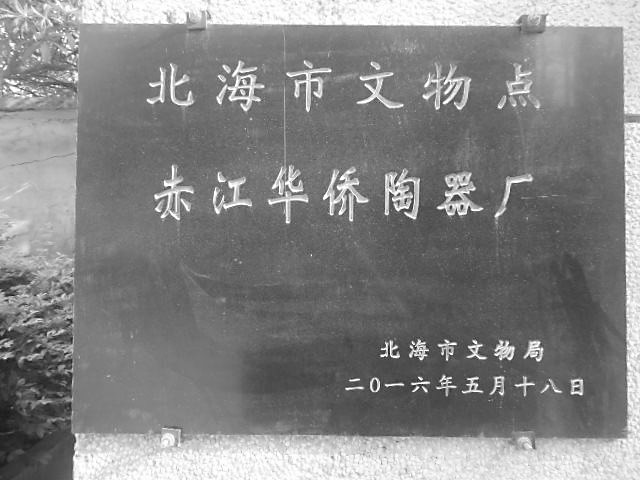 北海市文物点
赤江华侨陶器厂
北海市文物局
二〇一六年五月十八日